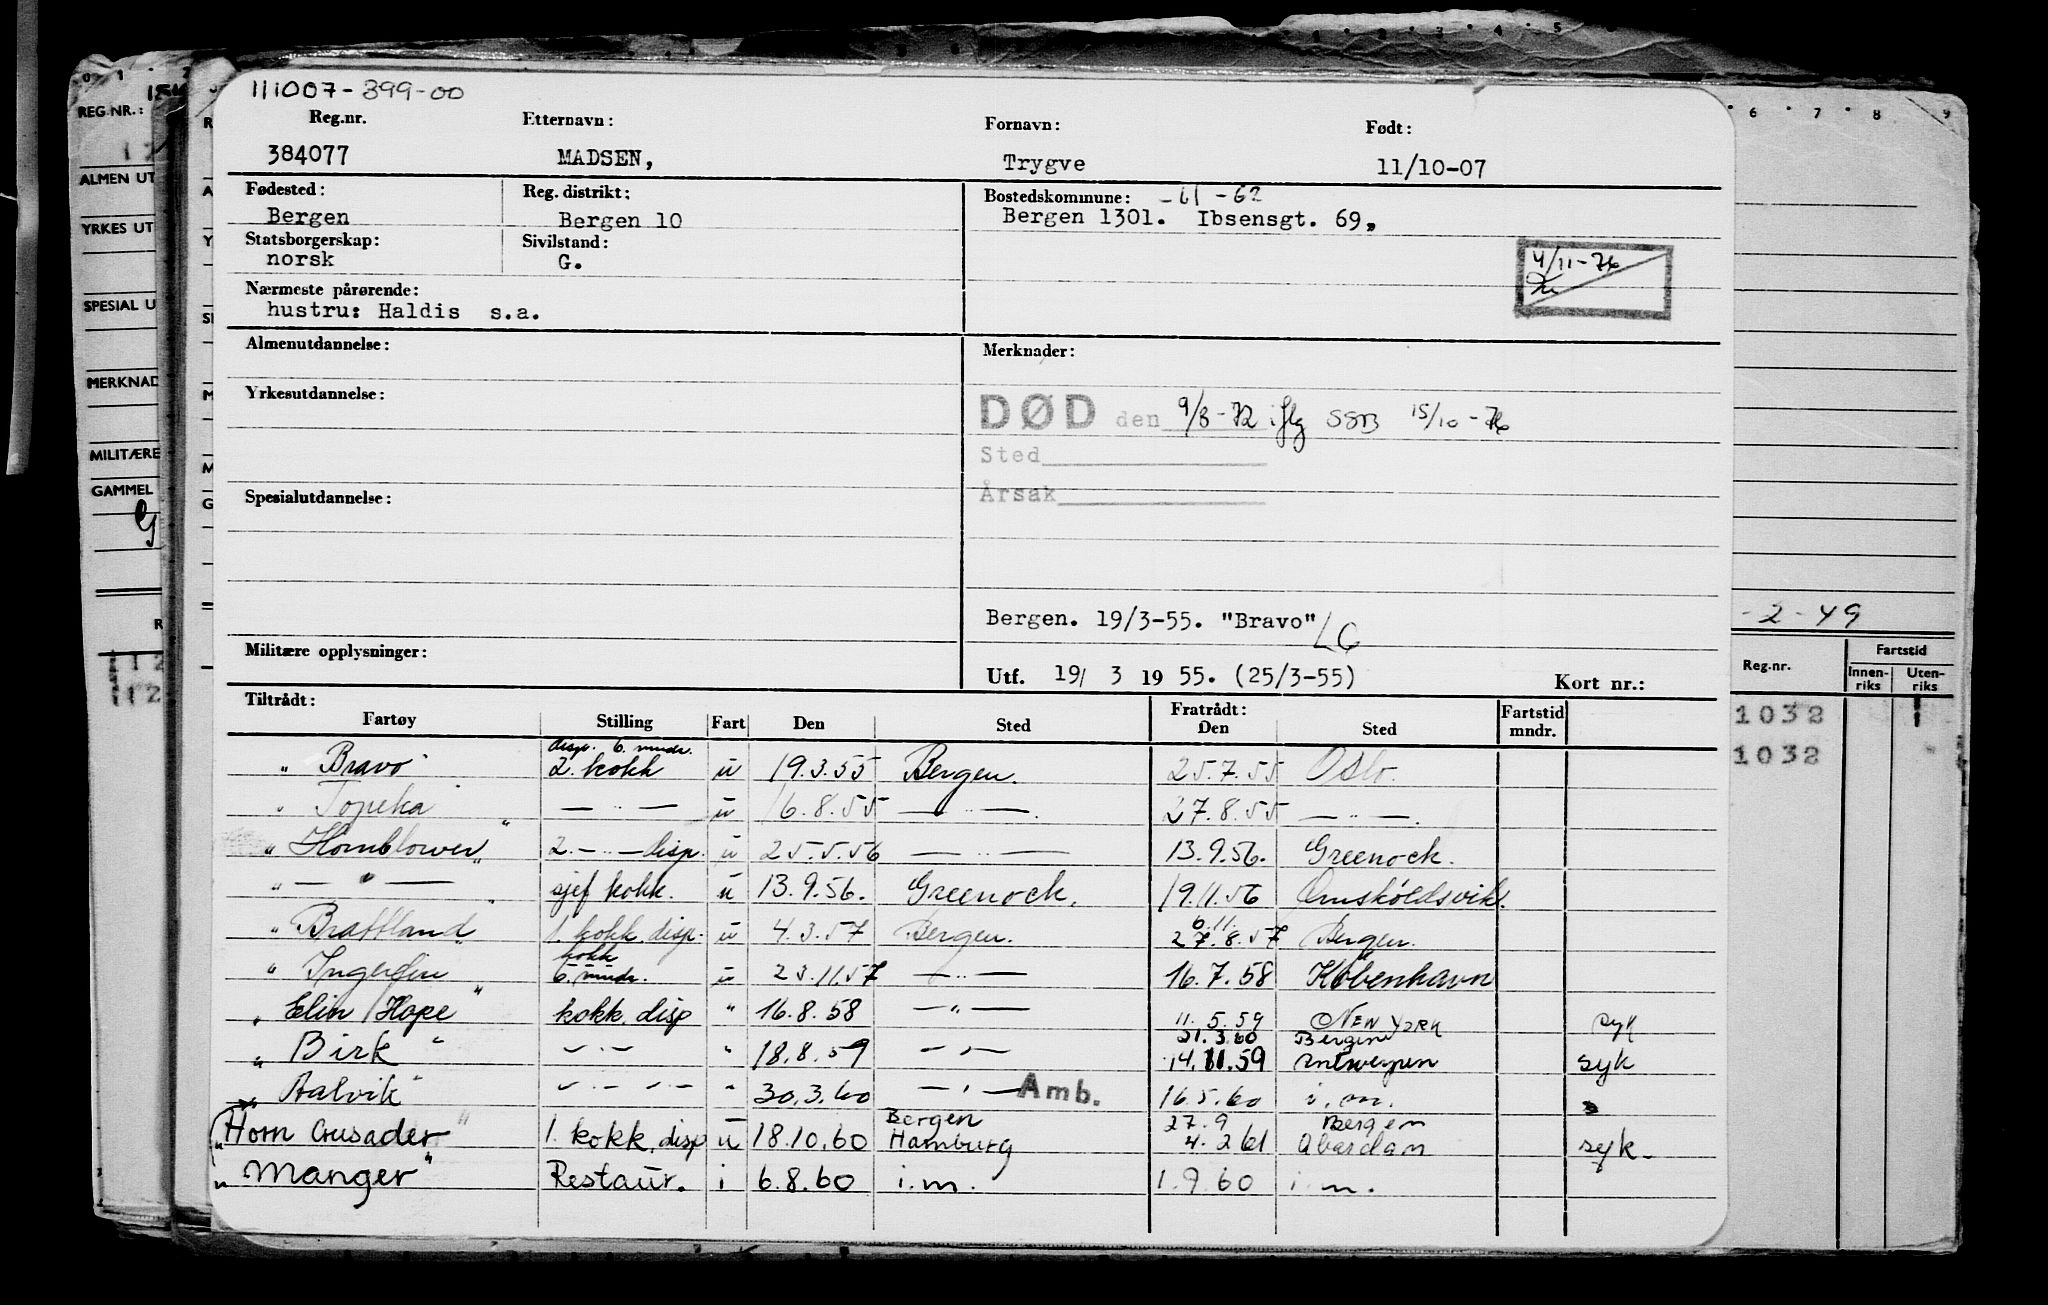 111007-399-00
Reg.nr. Etternavn: Fornavn: Født:
384077 MADSEN, Trygve 11/10-07
Fødested: Reg. distrikt: Bostedskommune: -61-62
Bergen Bergen 10 Bergen 1301. Ibsensgt. 69,
Statsborgerskap: Sivilstand:
norsk G.
4/11-76
Nærmeste pårørende:
hustru: Haldis s.a.
Almenutdannelse: Merknader:
Yrkesutdannelse:
DØD den 9/3-72 iflg SSB 15/10-76
Sted
Årsak
Spesialutdannelse:
Bergen. 19/3-55. "Bravo" LG
Militære opplysninger:
Utf. 19/ 3 19 55. (25/3-55) Kort nr.:
Tiltrådt: Fratrådt: Fartstid
Fartøy Stilling Fart Den Sted Den Sted mndr.
disp. 6. mndr.
" Bravo" 2. kokk u 19.3.55 Bergen. 25.7.55 Oslo.
" Topeka" — " — u 16.8.55 — " — 27.8.55 — " —.
" Hornblower" 2. — " — disp. u 25.5.56 — " — 13.9.56. Greenock.
" — " — " sjef kokk. u 13.9.56. Greenock. 19.11.56 Ørnsköldsvik.
6.11.
" Brattland" 1. kokk. disp. u 4.3.57 Bergen. 27.8.57 Bergen.
kokk
" Ingerfin" 6. mndr. u 23.11.57 — " — 16.7.58 København
" Elin Hope" kokk. disp " 16.8.58 — " — 11.5.59 NEW YORK syk
21.3.60 Bergen
" Birk" — " — " 18.8.59 — " — 14.11.59 Antwerpen syk
" Aalvik" — " — " — " 30.3.60 — " — Amb. 16.5.60 i.m.
Bergen 27.9 Bergen
" Horn Crusader" 1. kokk. disp u 18.10.60 Hamburg 4.2.61 Abardan syk-
" Manger" Restaur. i 6.8.60 i.m. 1.9.60 i.m.
REG.NR.:
ALMEN UT
YRKES UT
SPESIAL U
MERKNAD
MILITÆRE
GAMMEL
-2-49
Reg.nr. Fartstid
Innen-riks Uten-riks
1032
1032